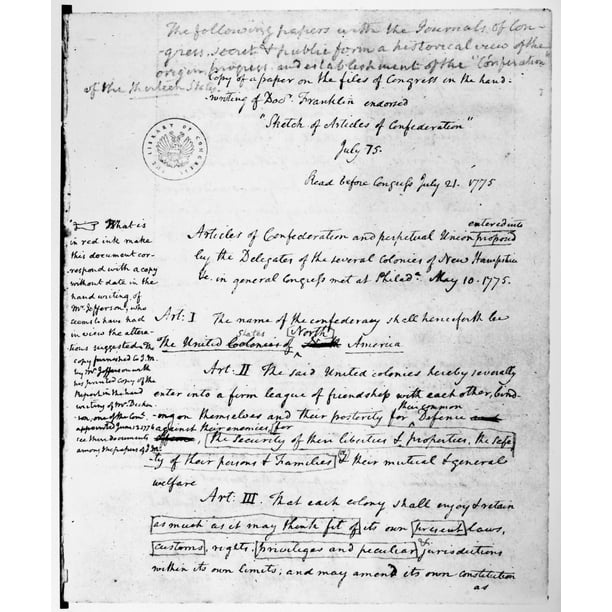 The following papers with the Journals of Con-
gress, secret & public form a historical view of the
origin, progress and establishment of the "Confederation"
of the thirteen States.
Copy of a paper on the files of Congress in the hand-
writing of Docr. Franklin endorsed
"Sketch of Articles of Confederation"
July 75.
Read before Congress July 21. 1775
THE LIBRARY OF CONGRESS
What is
in red ink make
this document cor-
respond with a copy
without date in the
hand writing, of
Mr. Jefferson, who
seems to have had
in view the altera-
tions suggested in the
copy furnished to J.M.
by Mr. Jefferson with
his printed copy of the
Report in the hand
writing of Mr. Dickin-
son, one of the Come.
appointed June 12 1776
see these documents
among the papers of J.M.
entered into
Articles of Confederation and perpetual Union proposed
by the Delegates of the several Colonies of New Hampshire
&c. in general Congress met at Philada. May 10. 1775.
Art: I The name of the confederacy shall henceforth be
States North
The United Colonies of America
Art: II The said United colonies hereby severally
enter into a firm league of friendship with each other, bind-
their common
ing on themselves and their posterity for Defence and
against their enemies for
the security of their liberties & properties, the safe-
ty of their persons & Families & their mutual & general
welfare
Art: III That each colony shall enjoy & retain
as much as it may think fit of its own present laws,
&
customs, rights, priviliges and peculiar jurisdictions
within its own limits; and may amend its own constitution
as